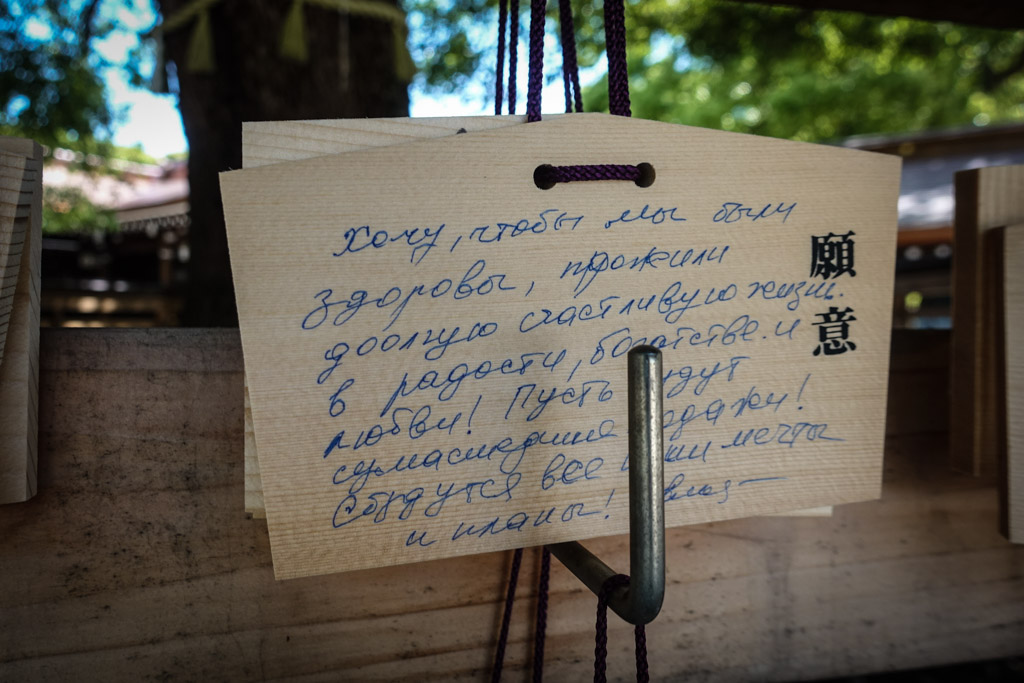 Хочу, чтобы мы были
здоровы, прожили
долгую счастливую жизнь.
в радости, богатстве. и
любви! Пусть
сумасшедшие
Сбудутся все мечты
и планы!
願意